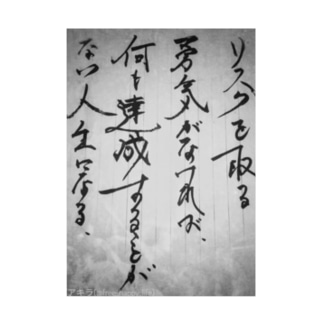 リスクを取る
勇気がなければ、
何も達成することが
ない人生になる、
アキラ